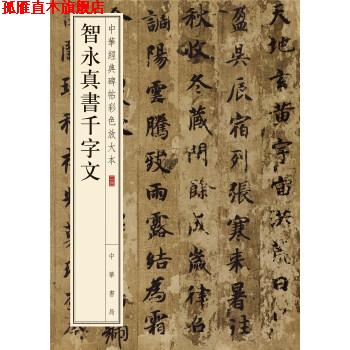 孤雁直木旗舰店
中華經典碑帖彩色放大本
智永真書千字文
中華書局
天地玄黄宇宙洪荒日月
盈昃辰宿列張寒来暑往
秋收冬藏閏餘成歲律召
調陽雲騰致雨露結為霜